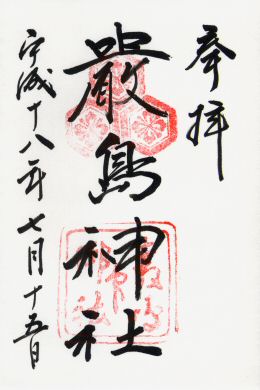 奉拝
嚴島神社
平成十八年七月十五日